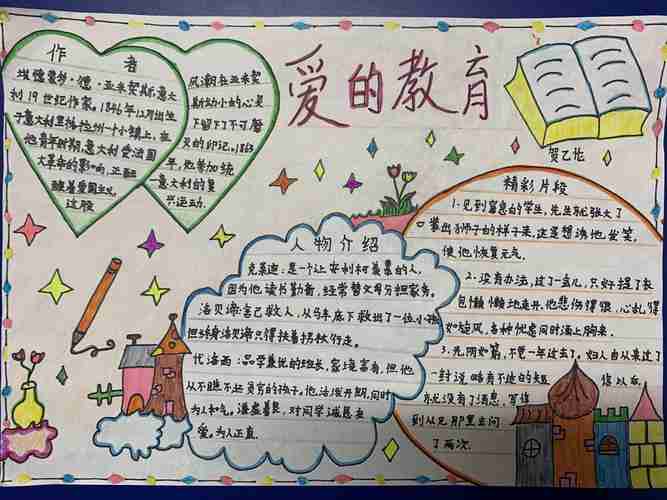 爱的教育
贺乙
作者
埃德蒙多·德·亚米契斯意大
利19世纪作家。1846年10月出生
于意大利里格拉州一个小镇上。在
他青年时期,意大利受法国
大革命的影响,正
酿着爱国主义
这股
风潮在亚米契
斯幼小的心灵
下留下了不可磨
灭的印记。1863
年,他参加统
意大利的复
兴运动.
人物介绍
克莱迪:是一个让安利柯羡慕的人,
因为他读书勤奋,经常替父母分担家务。
洛贝谛:舍己救人,从马车底下救出了一位小孩
但终身洛贝谛只得扶着拐杖行走。
代洛西:品学兼优的班长,家境富有,但他
从不瞧不起贫穷的孩子。他活泼开朗,同时
为人和气。谦虚善良,对同学诚恳友
爱。为人正直.
精彩片段
1.见到窘急的学生,先生就张大了
口装出狮子的样子来,这是想诱他发笑,
使他恢复元气.
2.没有办法,过了一会儿,只好提了教
包懒懒地走开。他悲伤得很,心乱得
如旋风,各种忧虑同时涌上胸来.
3.光阴如箭,不觉一年过去了。妇人自从来过了
一封说略有不适的短
信以后,
就没有了消息,写信
到从兄那里去问
了两次.